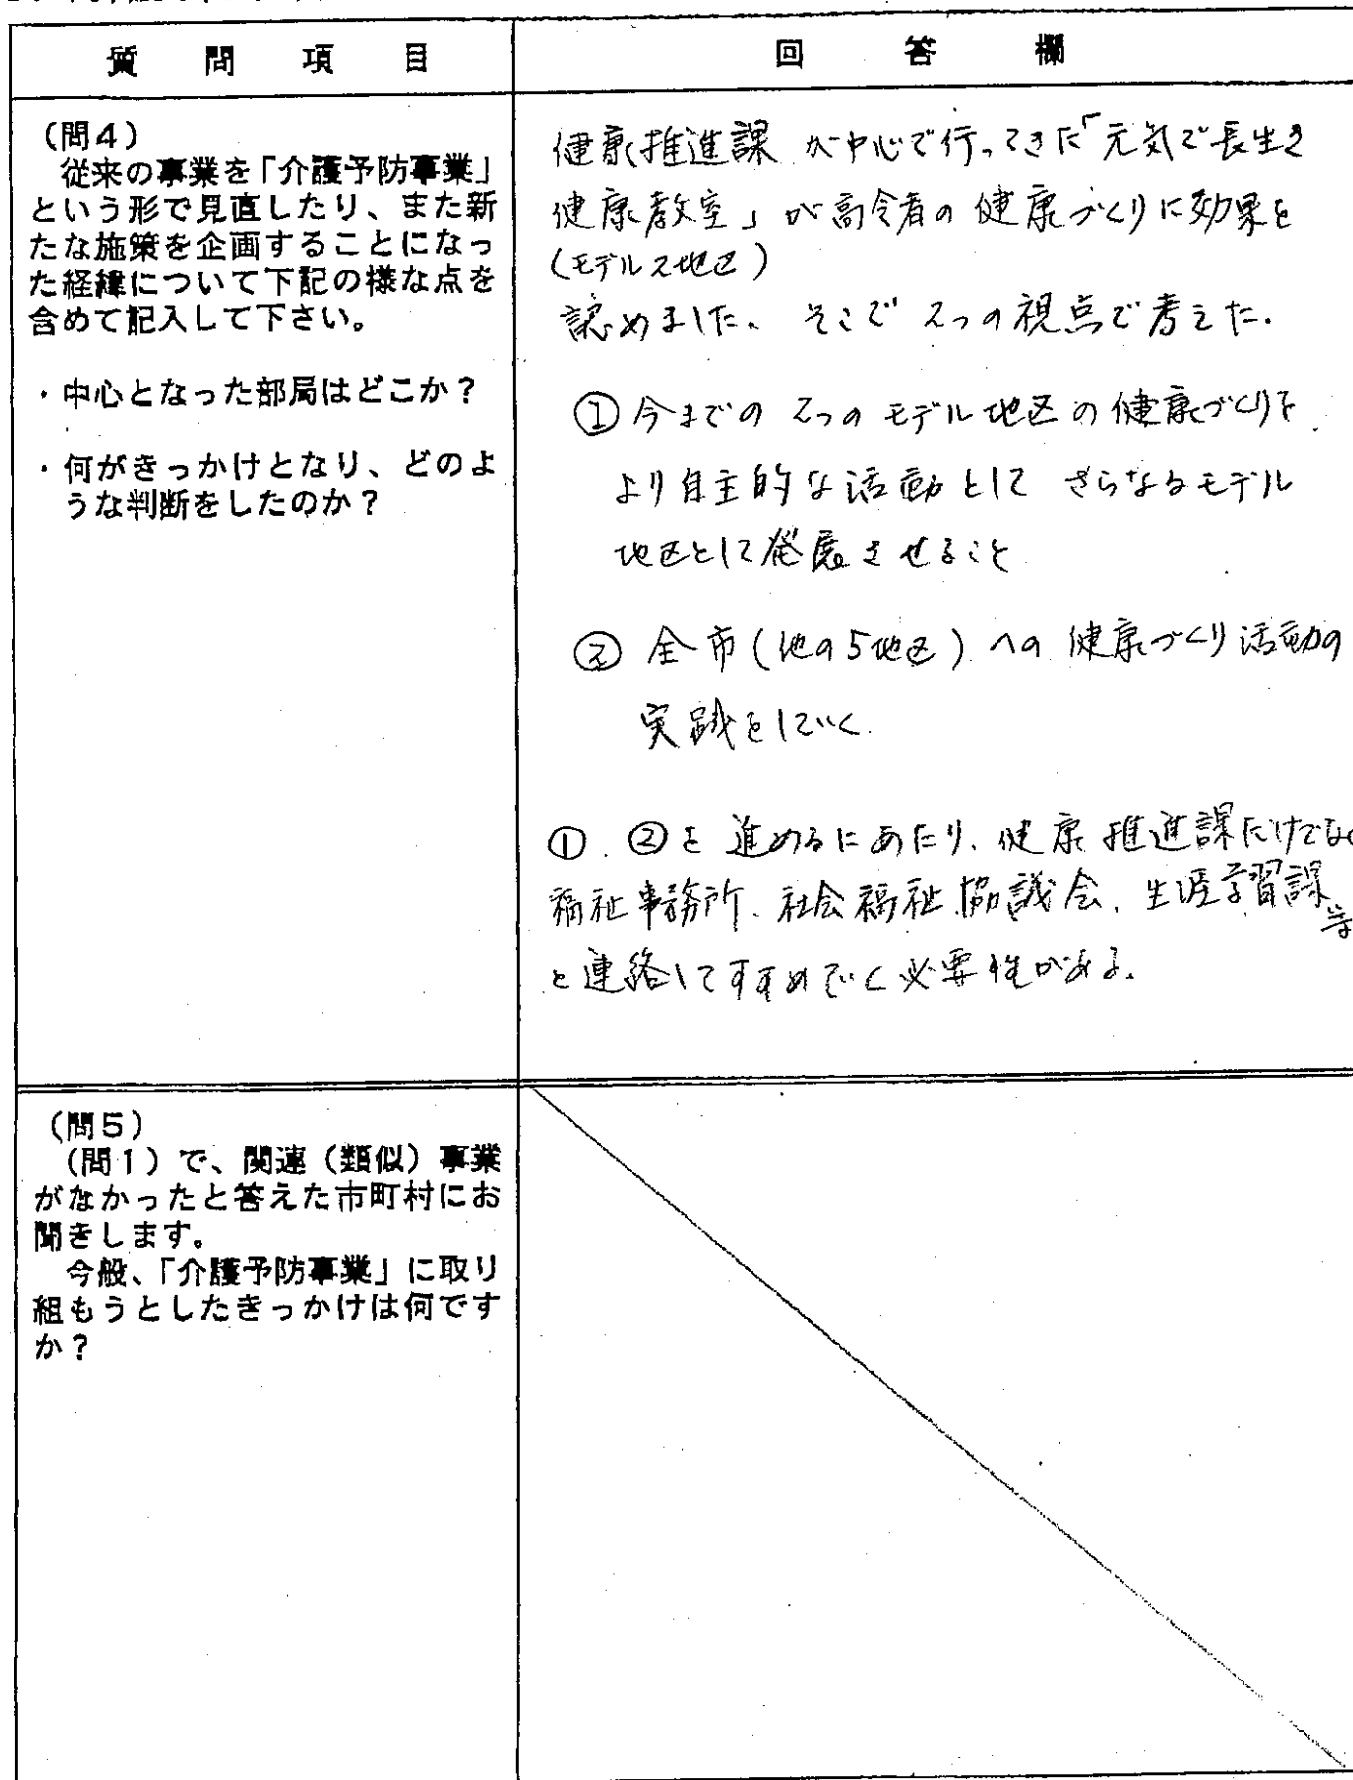 質問項目
回答欄
（問４）
従来の事業を「介護予防事業」
という形で見直したり、また新
たな施策を企画することになっ
た経緯について下記の様な点を
含めて記入して下さい。
・中心となった部局はどこか？
・何がきっかけとなり、どのよ
うな判断をしたのか？
健康推進課が中心で行ってきた「元気で長生き
健康教室」が高令者の健康づくりに効果を
（モデル2地区）
認めました。そこで2つの視点で考えた.
① 今までの2つのモデル地区の健康づくりを
より自主的な活動として さらなるモデル
地区として発展させること
② 全市（他の5地区）への健康づくり活動の
実践をしていく.
①.②を進めるにあたり、健康推進課だけでな
福祉事務所、社会福祉協議会、生涯学習課等
と連絡してすすめていく必要性がある.
（問５）
（問１）で、関連（類似）事業
がなかったと答えた市町村にお
聞きします。
今般、「介護予防事業」に取り
組もうとしたきっかけは何です
か？